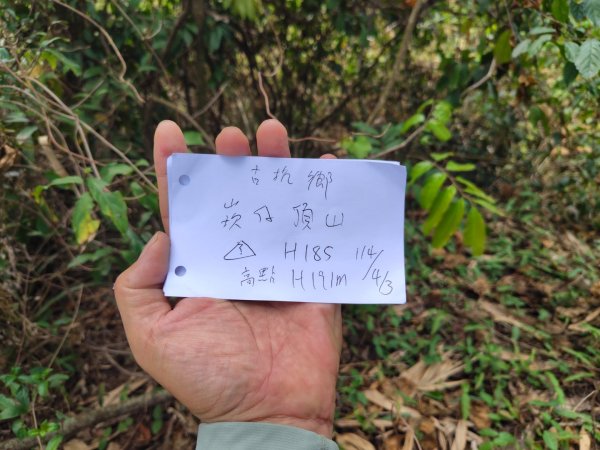 古坑鄉
崁仔頂山
△ H185 114/4/3
高點 H191m